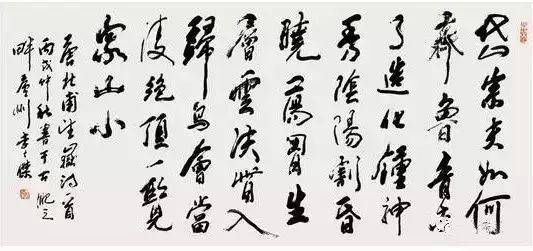 岱宗夫如何
齊魯青未
了造化鍾神
秀陰陽割昏
曉蕩胸生
層雲決眥入
歸鳥會當
凌絕頂一覽
衆山小
唐杜甫望嶽詩一首
丙戌仲秋書于古肥之
畔廬州李傑